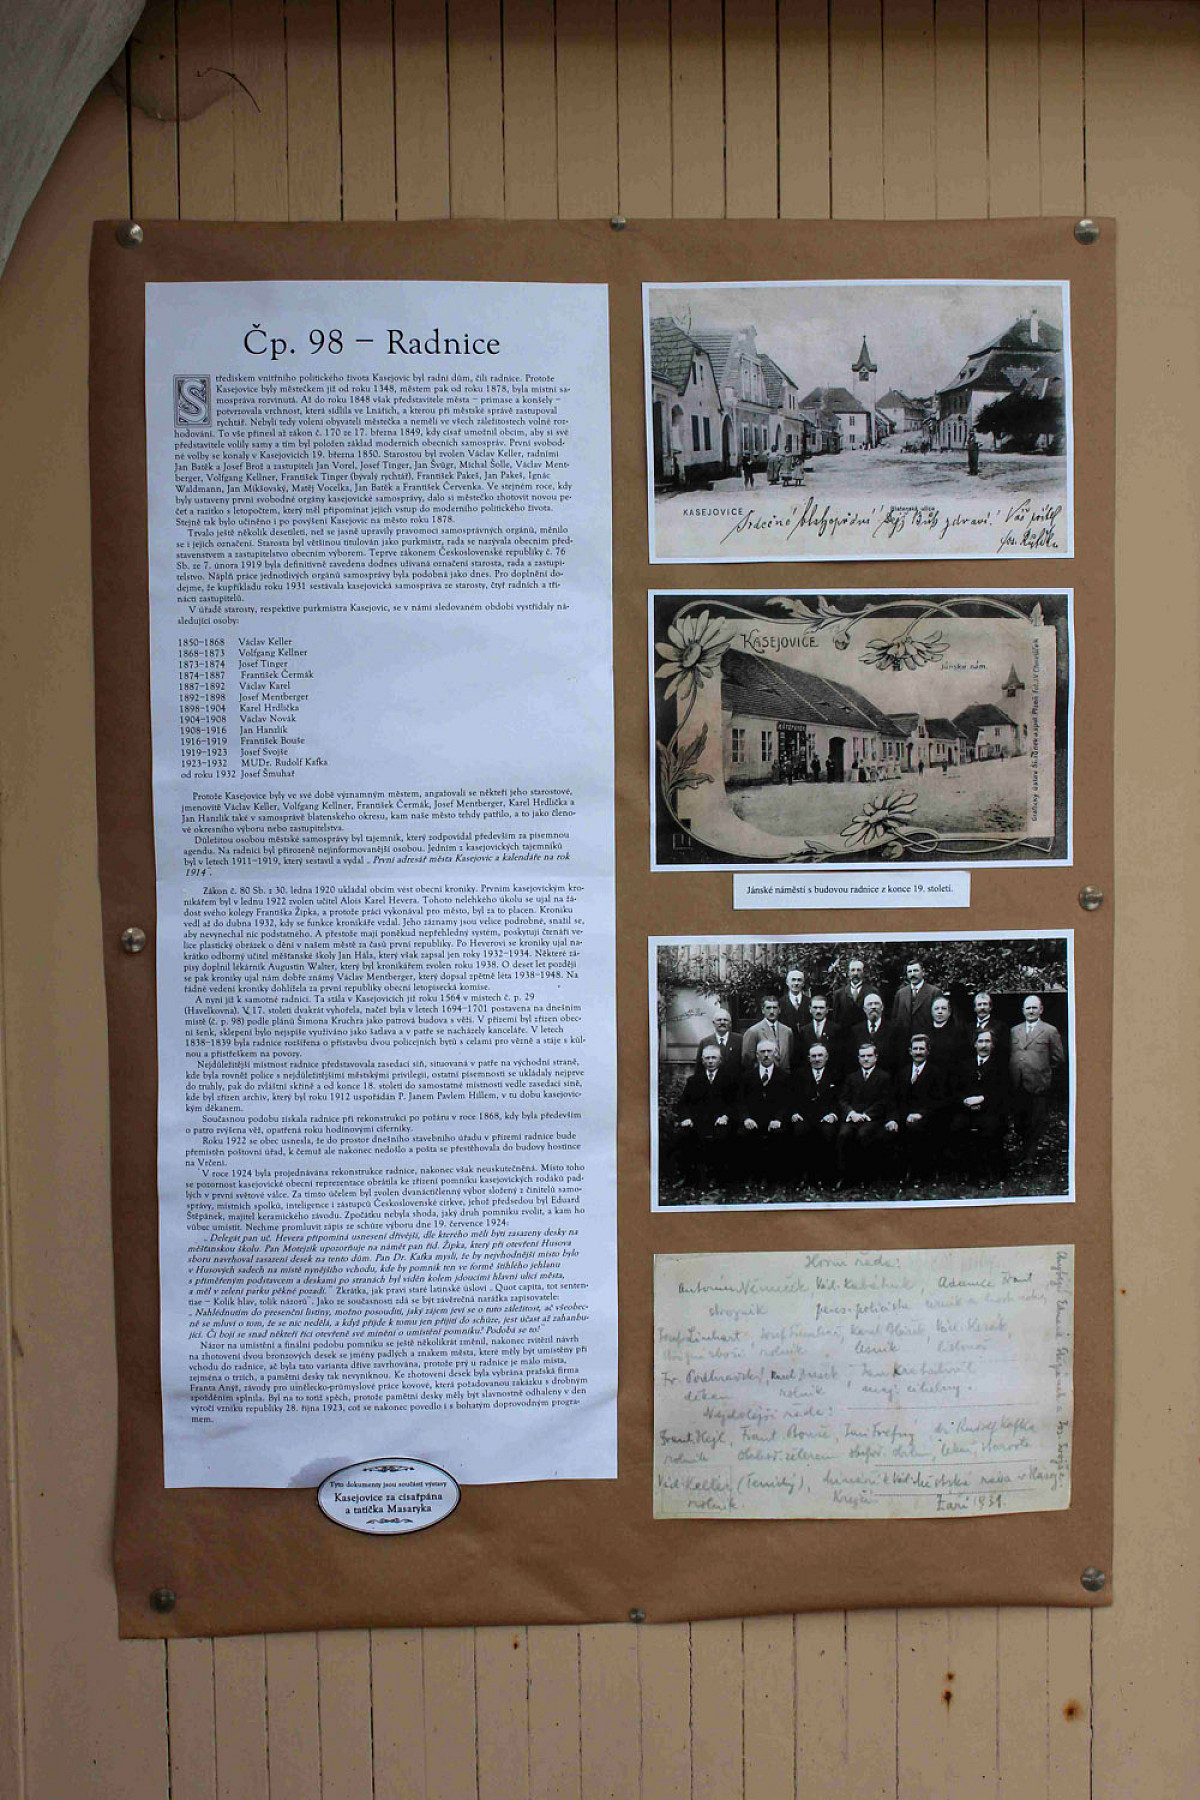 Čp. 98 – Radnice
Střediskem vnitřního politického života Kasejovic byl radní dům, čili radnice. Protože
Kasejovice byly městečkem již od roku 1348, městem pak od roku 1878, byla místní sa-
mospráva rozvinutá. Až do roku 1848 však představitele města – primase a konšely –
potvrzovala vrchnost, která sídlila ve Lnářích, a kterou při městské správě zastupoval
rychtář. Nebyli tedy voleni obyvateli městečka a neměli ve všech záležitostech volné roz-
hodování. To vše přinesl až zákon č. 170 ze 17. března 1849, kdy císař umožnil obcím, aby si své
představitele volily samy a tím byl položen základ moderních obecních samospráv. První svobod-
né volby se konaly v Kasejovicích 19. března 1850. Starostou byl zvolen Václav Keller, radními
Jan Batěk a Josef Brož a zastupiteli Jan Vorel, Josef Tinger, Jan Švügr, Michal Šolle, Václav Ment-
berger, Volfgang Kellner, František Tinger (bývalý rychtář), František Pakeš, Jan Pakeš, Ignác
Waldmann, Jan Mikšovský, Matěj Vocelka, Jan Batěk a František Červenka. Ve stejném roce, kdy
byly ustaveny první svobodné orgány kasejovické samosprávy, dalo si městečko zhotovit novou pe-
čeť a razítko s letopočtem, který měl připomínat jejich vstup do moderního politického života.
Stejně tak bylo učiněno i po povýšení Kasejovic na město roku 1878.
Trvalo ještě několik desetiletí, než se jasně upravily pravomoci samosprávných orgánů, měnilo
se i jejich označení. Starosta byl většinou titulován jako purkmistr, rada se nazývala obecním před-
stavenstvem a zastupitelstvo obecním výborem. Teprve zákonem Československé republiky č. 76
Sb. ze 7. února 1919 byla definitivně zavedena dodnes užívaná označení starosta, rada a zastupi-
telstvo. Náplň práce jednotlivých orgánů samosprávy byla podobná jako dnes. Pro doplnění do-
dejme, že kupříkladu roku 1931 sestávala kasejovická samospráva ze starosty, čtyř radních a tři-
nácti zastupitelů.
V úřadě starosty, respektive purkmistra Kasejovic, se v námi sledovaném období vystřídaly ná-
sledující osoby:
1850–1868 Václav Keller
1868–1873 Volfgang Kellner
1873–1874 Josef Tinger
1874–1887 František Čermák
1887–1892 Václav Karel
1892–1898 Josef Mentberger
1898–1904 Karel Hrdlička
1904–1908 Václav Novák
1908–1916 Jan Hanzlík
1916–1919 František Bouše
1919–1923 Josef Svojše
1923–1932 MUDr. Rudolf Kafka
od roku 1932 Josef Šmuhař
Protože Kasejovice byly ve své době významným městem, angažovali se někteří jeho starostové,
jmenovitě Václav Keller, Volfgang Kellner, František Čermák, Josef Mentberger, Karel Hrdlička a
Jan Hanzlík také v samosprávě blatenského okresu, kam naše město tehdy patřilo, a to jako členo-
vé okresního výboru nebo zastupitelstva.
Důležitou osobou městské samosprávy byl tajemník, který zodpovídal především za písemnou
agendu. Na radnici byl přirozeně nejinformovanější osobou. Jedním z kasejovických tajemníků
byl v letech 1911–1919, který sestavil a vydal „První adresář města Kasejovic a kalendáře na rok
1914".
Zákon č. 80 Sb. z 30. ledna 1920 ukládal obcím vést obecní kroniky. Prvním kasejovickým kro-
nikářem byl v lednu 1922 zvolen učitel Alois Karel Hevera. Tohoto nelehkého úkolu se ujal na žá-
dost svého kolegy Františka Žipka, a protože práci vykonával pro město, byl za to placen. Kroniku
vedl až do dubna 1932, kdy se funkce kronikáře vzdal. Jeho záznamy jsou velice podrobné, snažil se,
aby nevynechal nic podstatného. A přestože mají poněkud nepřehledný systém, poskytují čtenáři ve-
lice plastický obrázek o dění v našem městě za časů první republiky. Po Heverovi se kroniky ujal na-
krátko odborný učitel měšťanské školy Jan Hála, který však zapsal jen roky 1932–1934. Některé zá-
pisy doplnil lékárník Augustin Walter, který byl kronikářem zvolen roku 1938. O deset let později
se pak kroniky ujal nám dobře známý Václav Mentberger, který dopsal zpětně léta 1938–1948. Na
řádné vedení kroniky dohlížela za první republiky obecní letopisecká komise.
A nyní již k samotné radnici. Ta stála v Kasejovicích již roku 1564 v místech č. p. 29
(Havelkovna). V 17. století dvakrát vyhořela, načež byla v letech 1694–1701 postavena na dnešním
místě (č. p. 98) podle plánů Šimona Kruchra jako patrová budova s věží. V přízemí byl zřízen obec-
ní šenk, sklepení bylo nejspíše využíváno jako šatlava a v patře se nacházely kanceláře. V letech
1838–1839 byla radnice rozšířena o přístavbu dvou policejních bytů s celami pro vězně a stáje s kůl-
nou a přístřeškem na povozy.
Nejdůležitější místnost radnice představovala zasedací síň, situovaná v patře na východní straně,
kde byla rovněž police s nejdůležitějšími městskými privilegii, ostatní písemnosti se ukládaly nejprve
do truhly, pak do zvláštní skříně a od konce 18. století do samostatné místnosti vedle zasedací síně,
kde byl zřízen archiv, který byl roku 1912 uspořádán P. Janem Pavlem Hillem, v tu dobu kasejovic-
kým děkanem.
Současnou podobu získala radnice při rekonstrukci po požáru v roce 1868, kdy byla především
o patro zvýšena věž, opatřená roku hodinovými ciferníky.
Roku 1922 se obec usnesla, že do prostor dnešního stavebního úřadu v přízemí radnice bude
přemístěn poštovní úřad, k čemuž ale nakonec nedošlo a pošta se přestěhovala do budovy hostince
na Vrčeni.
V roce 1924 byla projednávána rekonstrukce radnice, nakonec však neuskutečněná. Místo toho
se pozornost kasejovické obecní reprezentace obrátila ke zřízení pomníku kasejovických rodáků pad-
lých v první světové válce. Za tímto účelem byl zvolen dvanáctičlenný výbor složený z činitelů samo-
správy, místních spolků, inteligence i zástupců Československé církve, jehož předsedou byl Eduard
Štěpánek, majitel keramického závodu. Zpočátku nebyla shoda, jaký druh pomníku zvolit, a kam ho
vůbec umístit. Nechme promluvit zápis ze schůze výboru dne 19. července 1924:
„Delegát pan uč. Hevera připomíná usnesení dřívější, dle kterého měli býti zasazeny desky na
měšťanskou školu. Pan Motejzík upozorňuje na námět pan říd. Žipka, který při otevření Husova
sboru navrhoval zasazení desek na tento dům. Pan Dr. Kafka myslí, že by nejvhodnější místo bylo
v Husových sadech na místě nynějšího vchodu, kde by pomník ten ve formě štíhlého jehlanu
s přiměřeným podstavcem a deskami po stranách byl viděn kolem jdoucími hlavní ulicí města,
a měl v zeleni parku pěkné pozadí." Zkrátka, jak praví staré latinské úsloví „Quot capita, tot senten-
tiae – Kolik hlav, tolik názorů". Jako ze současnosti zdá se být závěrečná narážka zapisovatele:
„Nahlédnutím do presenční listiny, možno posouditi, jaký zájem jeví se o tuto záležitost, ač všeobec-
ně se mluví o tom, že se nic nedělá, a když přijde k tomu jen přijíti do schůze, jest účast až zahanbu-
jící. Či bojí se snad někteří říci otevřeně své mínění o umístění pomníku? Podobá se to!"
Názor na umístění a finální podobu pomníku se ještě několikrát změnil, nakonec zvítězil návrh
na zhotovení dvou bronzových desek se jmény padlých a znakem města, které měly být umístěny při
vchodu do radnice, ač byla tato varianta dříve zavrhována, protože prý u radnice je málo místa,
zejména o trzích, a pamětní desky tak nevyniknou. Ke zhotovení desek byla vybrána pražská firma
Franta Anýž, závody pro umělecko-průmyslové práce kovové, která požadovanou zakázku s drobným
zpožděním splnila. Byl na to totiž spěch, protože pamětní desky měly být slavnostně odhaleny v den
výročí vzniku republiky 28. října 1923, což se nakonec povedlo i s bohatým doprovodným progra-
mem.
Tyto dokumenty jsou součástí výstavy
Kasejovice za císařpána
a tatíčka Masaryka
KASEJOVICE
Blatenská ulice
Srdečné blahopřání! zdraví! Váš přítel
Jos.
KASEJOVICE
Jánské nám.
Jánské náměstí s budovou radnice z konce 19. století.
Horní řada:
Antonín Němeček, Václ. , Frant
strojník
rolník
děkan rolník
Nejdolejší řada:
Frant. Hejl, Frant Bouše, Jan dr Rudolf Kafka
rolník lékař, starosta
Václ. Keller
rolník Září 1931.